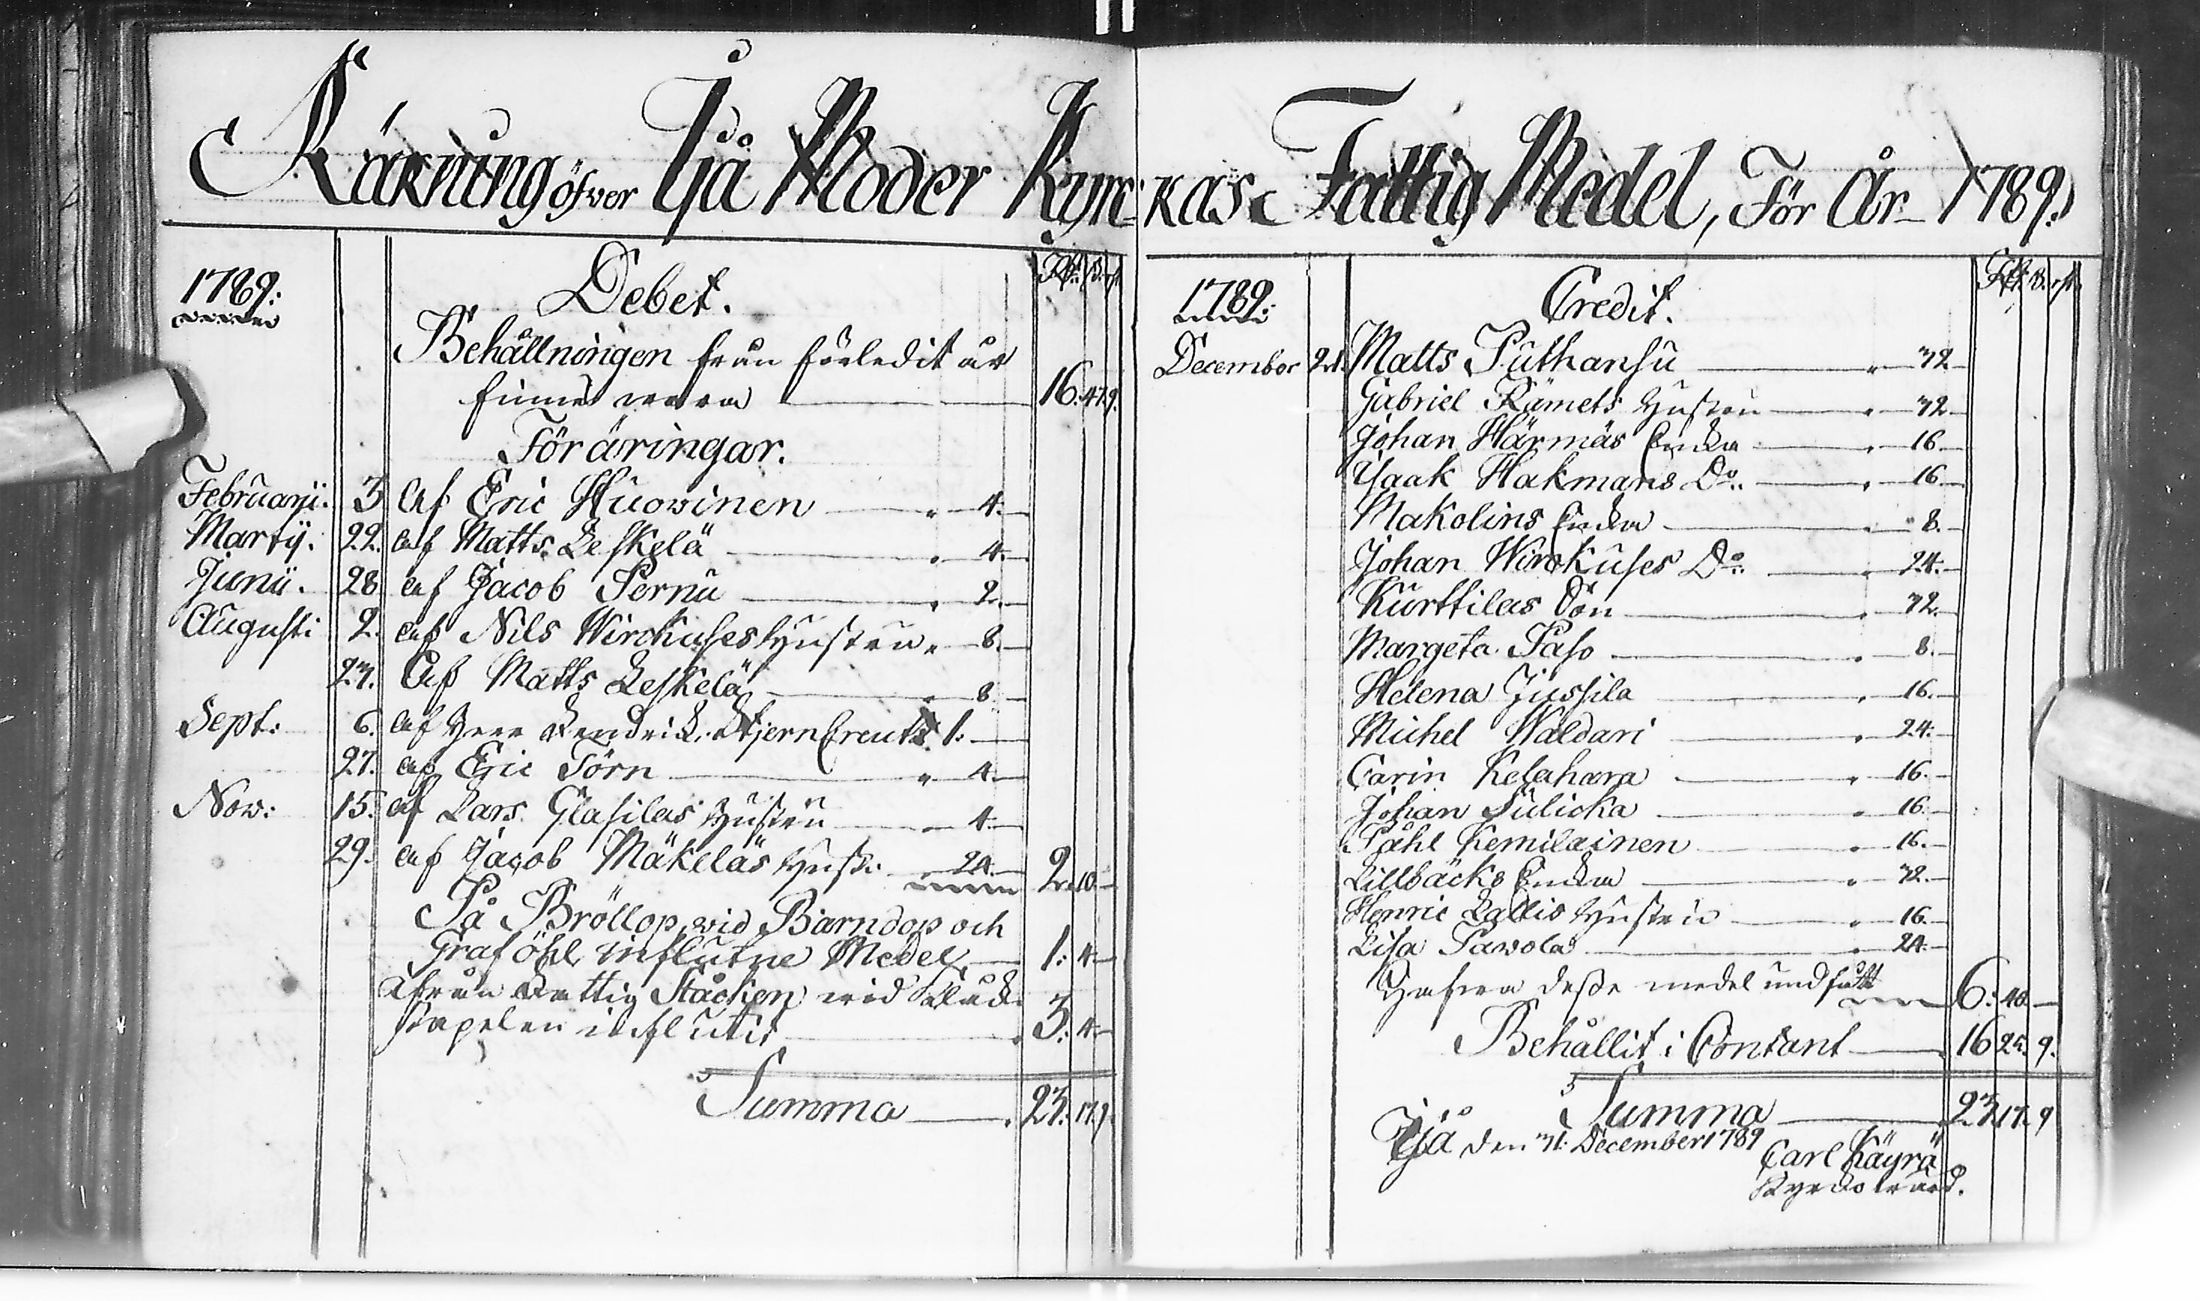 Räkning öfver Ijå Moder Kyrckas Fattig Medel, För År 1789.
1789:
Debet.
Rdr: ß. rst.
Behållningen från förledit år
finnes vara 16. 47. 9.
Föräringar.
Februarii. 3 Af Eric Huovinen " 4.
Martij. 22. af Matts Leskelä " 4.
Junii. 28. af Jacob Pernu " 2.
Augusti 2. af Nils Wirckuses Hustru " 8.
23. Af Matts Leskelä " 8.
Sept: 6. af Herr Lendrick Stjerncreutz 1.
27. af Eric Törn " 4.
Nov: 15. af Lars Glasilas Hustru 4.
29. af Jacob Mäkeläs Hust: 24. 2. 10.
På Bröllop, vid Barndop och
Graföhl influtne Medel 1: 4.
Ifrån Fattig Stäcken vid Klock
stapelen influtit 3: 4.
Summa 23. 17. 9.
1789:
Credit.
Rdr: ß. rst.
December 21. Matts Puthansu " 32
Gabriel Rämets Hustru " 32.
Johan Härmäs Encka " 16.
Isaak Hakmans Do. " 16.
Makolins Encka " 8.
Johan Wirckuses Do. " 24.
Kurttilas Son " 32.
Margeta Paso " 8.
Helena Jussila " 16.
Michel Waldari " 24.
Carin Kelahara " 16.
Johan Sulicka " 16.
Påhl Kemilainen " 16.
Lillbäcks Encka " 32.
Henric Lallis Hustru " 16.
Lisa Pavola " 24.
Hafva desse medel undfått 6: 40.
Behållit i Contant 16 25. 9.
Summa 23. 17. 9
Ijå den 31: December 1789
Carl Käyrä
Kyrckovärd.